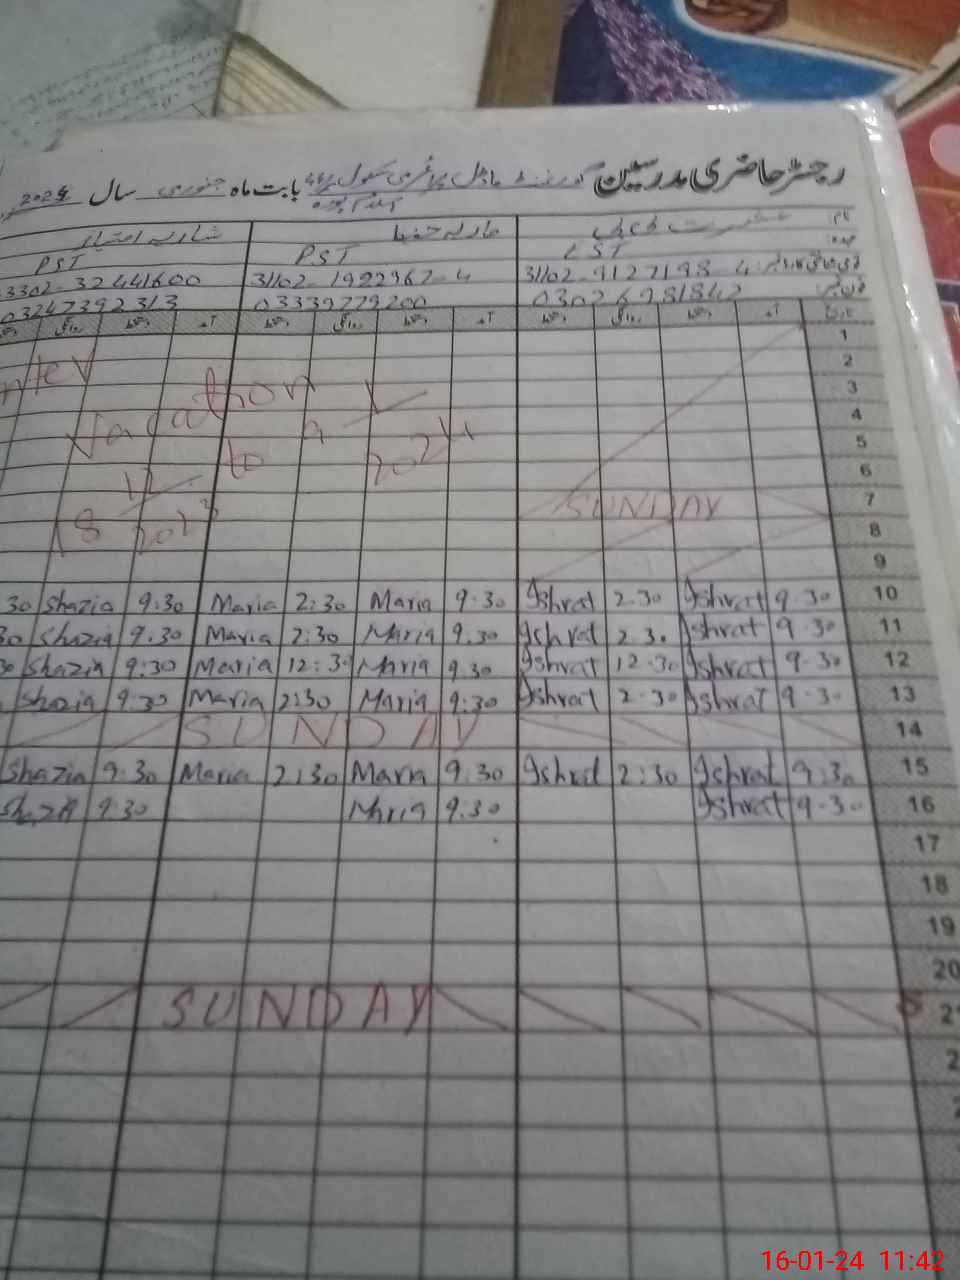 رجسٹر حاضری مدرسین گورنمنٹ ماڈل پرائمری سکول بابت ماہ جنوری سال 2024
نام
عشرت بی بی ماریہ حفیظ شازیہ امتیاز
عہدہ
EST PST PST
31102-9127198-4 31102-1992367-4 3302-32441600
فون نمبر 03026981842 03339779200 03247392313
تاریخ آمد دستخط روانگی دستخط آمد دستخط روانگی دستخط آمد دستخط روانگی دستخط
1
2
3
4
5
6
7
8
9
nter
Vacation
18 12/2023 to 9 1/2024
SUNDAY
30 Shazia 9:30 Maria 2:30 Maria 9:30 Ishrat 2.30 Ishrat 9.30 10
30 Shazia 9.30 Maria 2:30 Maria 9.30 Ishrat 2.30 Ishrat 9.30 11
30 Shazia 9:30 Maria 12:30 Maria 9.30 Ishrat 12.30 Ishrat 9.30 12
Shazia 9:30 Maria 2:30 Maria 9:30 Ishrat 2.30 Ishrat 9.30 13
SUNDAY 14
Shazia 9:30 Maria 2:30 Maria 9.30 Ishrat 2:30 Ishrat 9:30 15
Shazia 9:30 Maria 9:30 Ishrat 9.30 16
17
18
19
20
SUNDAY 2
2
16-01-24 11:42